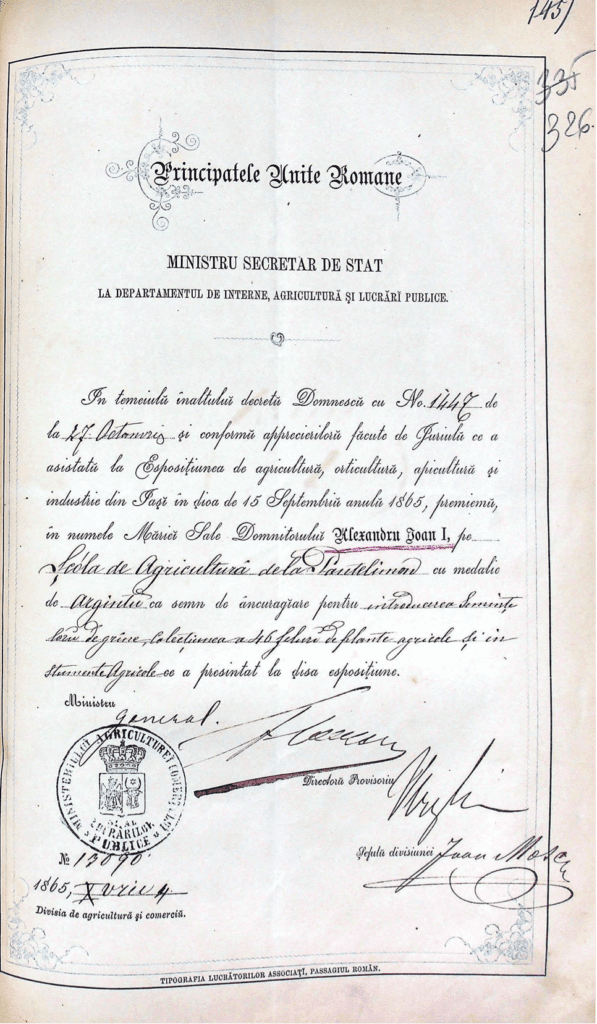 1451
335
326.
Principatele Unite Romane
MINISTRU SECRETAR DE STAT
LA DEPARTAMENTUL DE INTERNE, AGRICULTURĂ ȘI LUCRĂRĬ PUBLICE.
În temeiulŭ înaltuluĭ decretŭ Domnescŭ cu No. 1447 de
la 27 Octomvrie și conformŭ apprecierilorŭ făcute de Juriulŭ ce a
asistatŭ la Esposițiunea de agricultură, orticultură, apicultură și
industrie din Iașĭ în dioa de 15 Septembriŭ anulŭ 1865, premiemŭ,
în numele Măriei Sale Domnitoruluĭ Alexandru Ioan I, pe
Șcóla de Agricultură de la Pantelimon cu medalie
de Argintŭ ca semn de âncuragiare pentru introducerea semințe
lorŭ de grîne, colecțiunea a 46 feluri de plante agricole și in
strumente Agricole ce a presintat la disa esposițiune.
Ministru
general.
Directorŭ Provisoriŭ
MINISTERIULUĬ AGRICULTUREĬ COMERCIULUĬ
ȘI AL
LUCRĂRILOR
PUBLICE
Șefulŭ diviziuneĭ Ioan
№ 13090.
1865, Xvrie 4
Divisia de agricultură și comerciŭ.
TIPOGRAFIA LUCRĂTORILOR ASSOCIAȚĬ, PASSAGIUL ROMÂN.